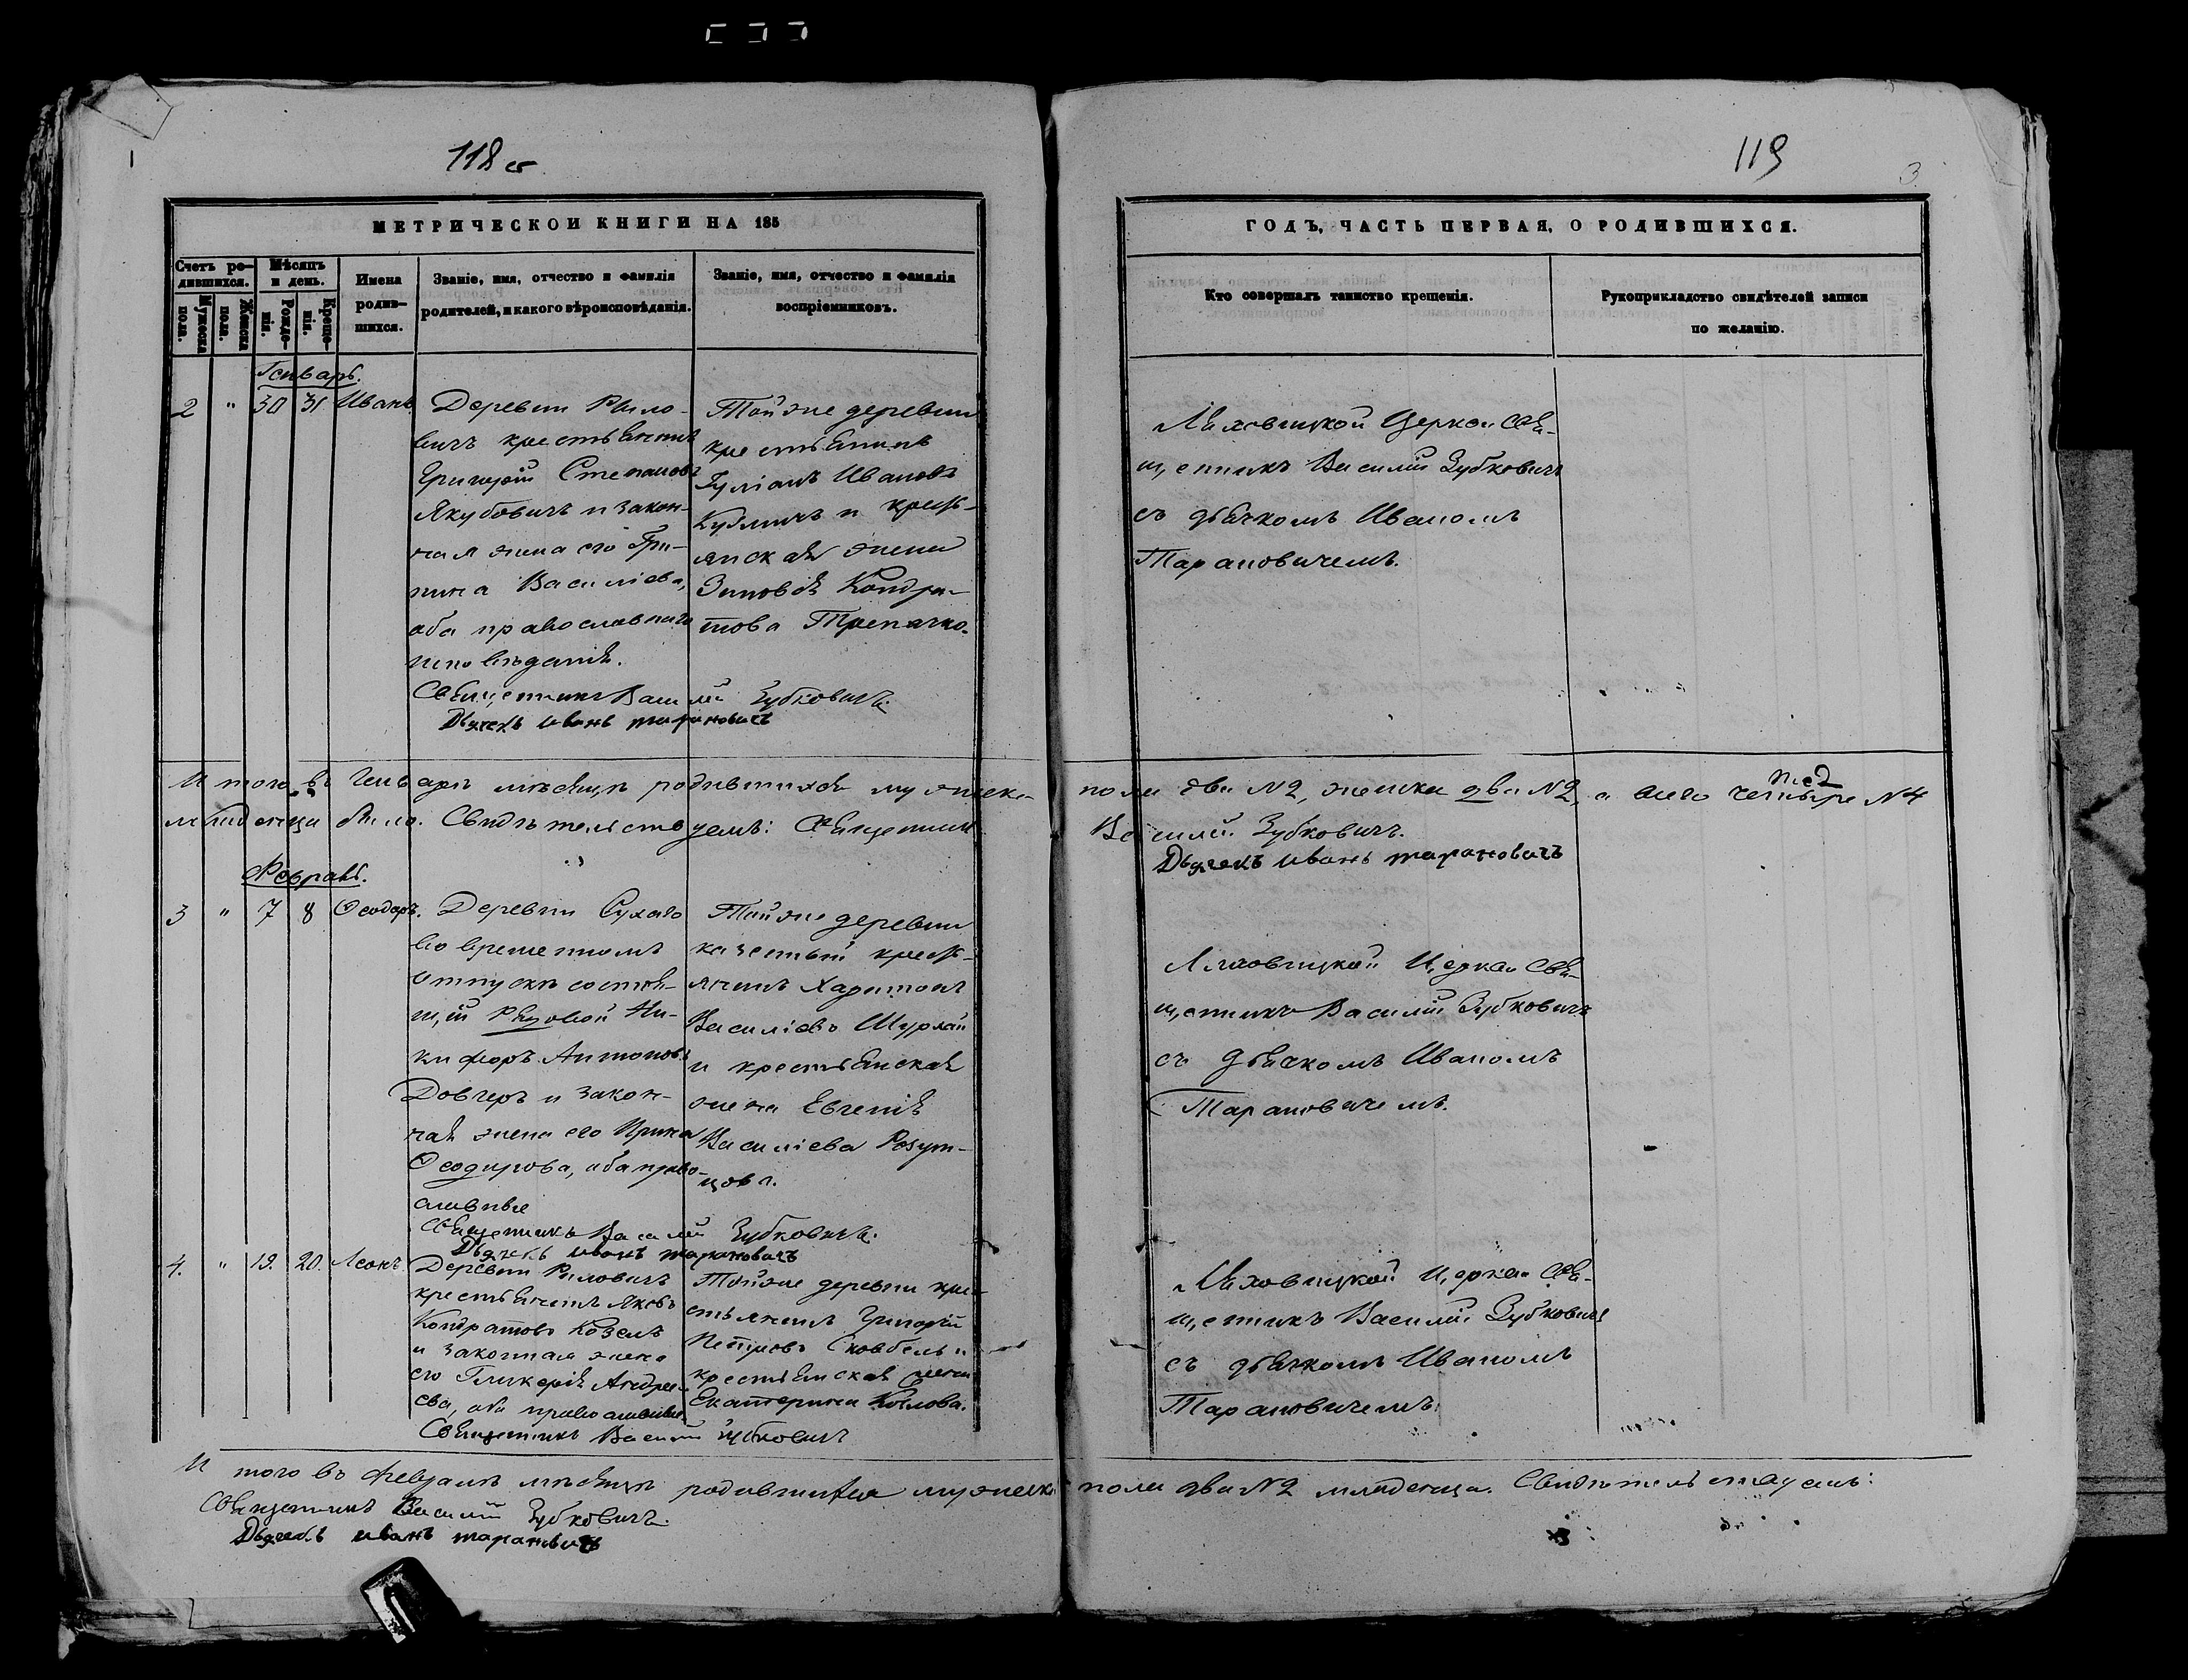 118 об
119
3
МЕТРИЧЕСКОЙ КНИГИ НА 185
ГОДЪ, ЧАСТЬ ПЕРВАЯ, О РОДИВШИХСЯ.
Счетъ ро-
дившихся.
Мужеска
пола.
Женска
пола.
Мѣсяцъ
и день.
Рожде-
нія.
Креще-
нія.
Имена
родив-
шихся.
Званіе, имя, отчество и фамилія
родителей, и какого вѣроисповѣданія.
Званіе, имя, отчество и фамилія
воспріемниковъ.
Кто совершалъ таинство крещенія.
Рукоприкладство свидѣтелей записи
по желанію.
Генварь.
2 " 30 31 Иванъ
Деревни Рыло-
вичъ крестьянинъ
Григорій Степановъ
Якубовичъ и закон-
ная жена его
Василіева,
оба православнаго
исповѣданія.
Священникъ Василій Зубковичъ.
Дьячекъ иванъ тарановичъ
Той же деревни
крестьянинъ
Іуліанъ Ивановъ
и кресть-
янская жена
Зиновія Кондра-
това
Ляховицкой Церкви Свя-
щенникъ Василій Зубковичъ
съ дьячкомъ Иваномъ
Тарановичемъ.
И того въ Генварѣ мѣсяцѣ родившихся мужеска пола два №2, женска два №2, а всего четыре №4
младенца было. Свидѣтельствуемъ: Священникъ Василій Зубковичъ.
Дьячекъ иванъ тарановичъ
Февраль.
3 " 7 8 Ѳеодоръ.
Деревни Сухаго
во временномъ
отпускѣ состоя-
щій рядовой Ни-
кифоръ Антоновъ
Довгеръ и закон-
ная жена его Ирина
Ѳеодорова, оба право-
славные
Священникъ Василій Зубковичъ.
Дьячекъ иванъ тарановичъ
Той же деревни
казенный кресть-
янинъ Харитонъ
Василіевъ
и крестьянская
жена Евгенія
Василіева
цова.
Ляховицкой Церкви Свя-
щенникъ Василій Зубковичъ
съ дьячкомъ Иваномъ
Тарановичемъ.
4. " 19. 20. Леонъ.
Деревни Рыловичъ
крестьянинъ Яковъ
Кондратовъ Козелъ
и законная жена
его Гликерія Андрее-
ва, оба православные
Священникъ Василій Зубковичъ
Той же деревни кре-
стьянинъ Григорій
Петровъ и
крестьянская жена
Екатерина
Ляховицкой Церкви Свя-
щенникъ Василій Зубковичъ
съ дьячкомъ Иваномъ
Тарановичемъ.
И того въ Февралѣ мѣсяцѣ родившихся мужеска пола два №2 младенца. Свидѣтельствуемъ:
Священникъ Василій Зубковичъ.
Дьячекъ иванъ тарановичъ